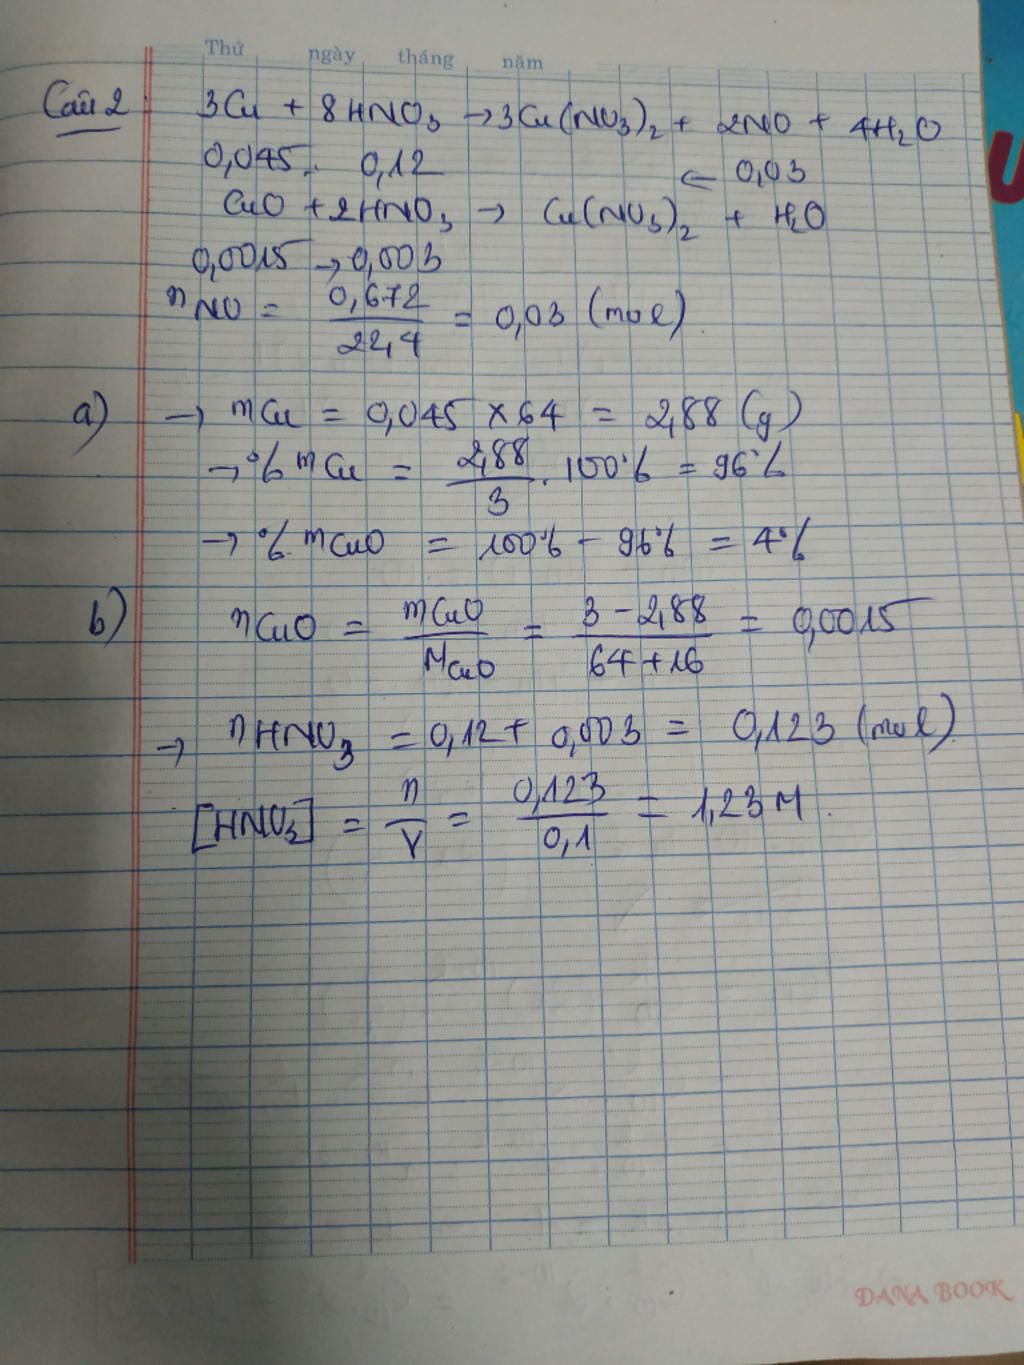 Thứ ngày tháng năm
Câu 2 3Cu + 8HNO3 → 3Cu(NO3)2 + 2NO + 4H2O
0,045 0,12 ← 0,03
CuO + 2HNO3 → Cu(NO3)2 + H2O
0,0015 → 0,003
nNO = 0,672 / 22,4 = 0,03 (mol)
a) → mCu = 0,045 × 64 = 2,88 (g)
→ % mCu = 2,88 / 3 . 100% = 96%
→ % mCuO = 100% - 96% = 4%
b) nCuO = mCuO / MCuO = 3 - 2,88 / 64 + 16 = 0,0015
→ nHNO3 = 0,12 + 0,003 = 0,123 (mol)
[HNO3] = n / V = 0,123 / 0,1 = 1,23 M.
DANA BOOK